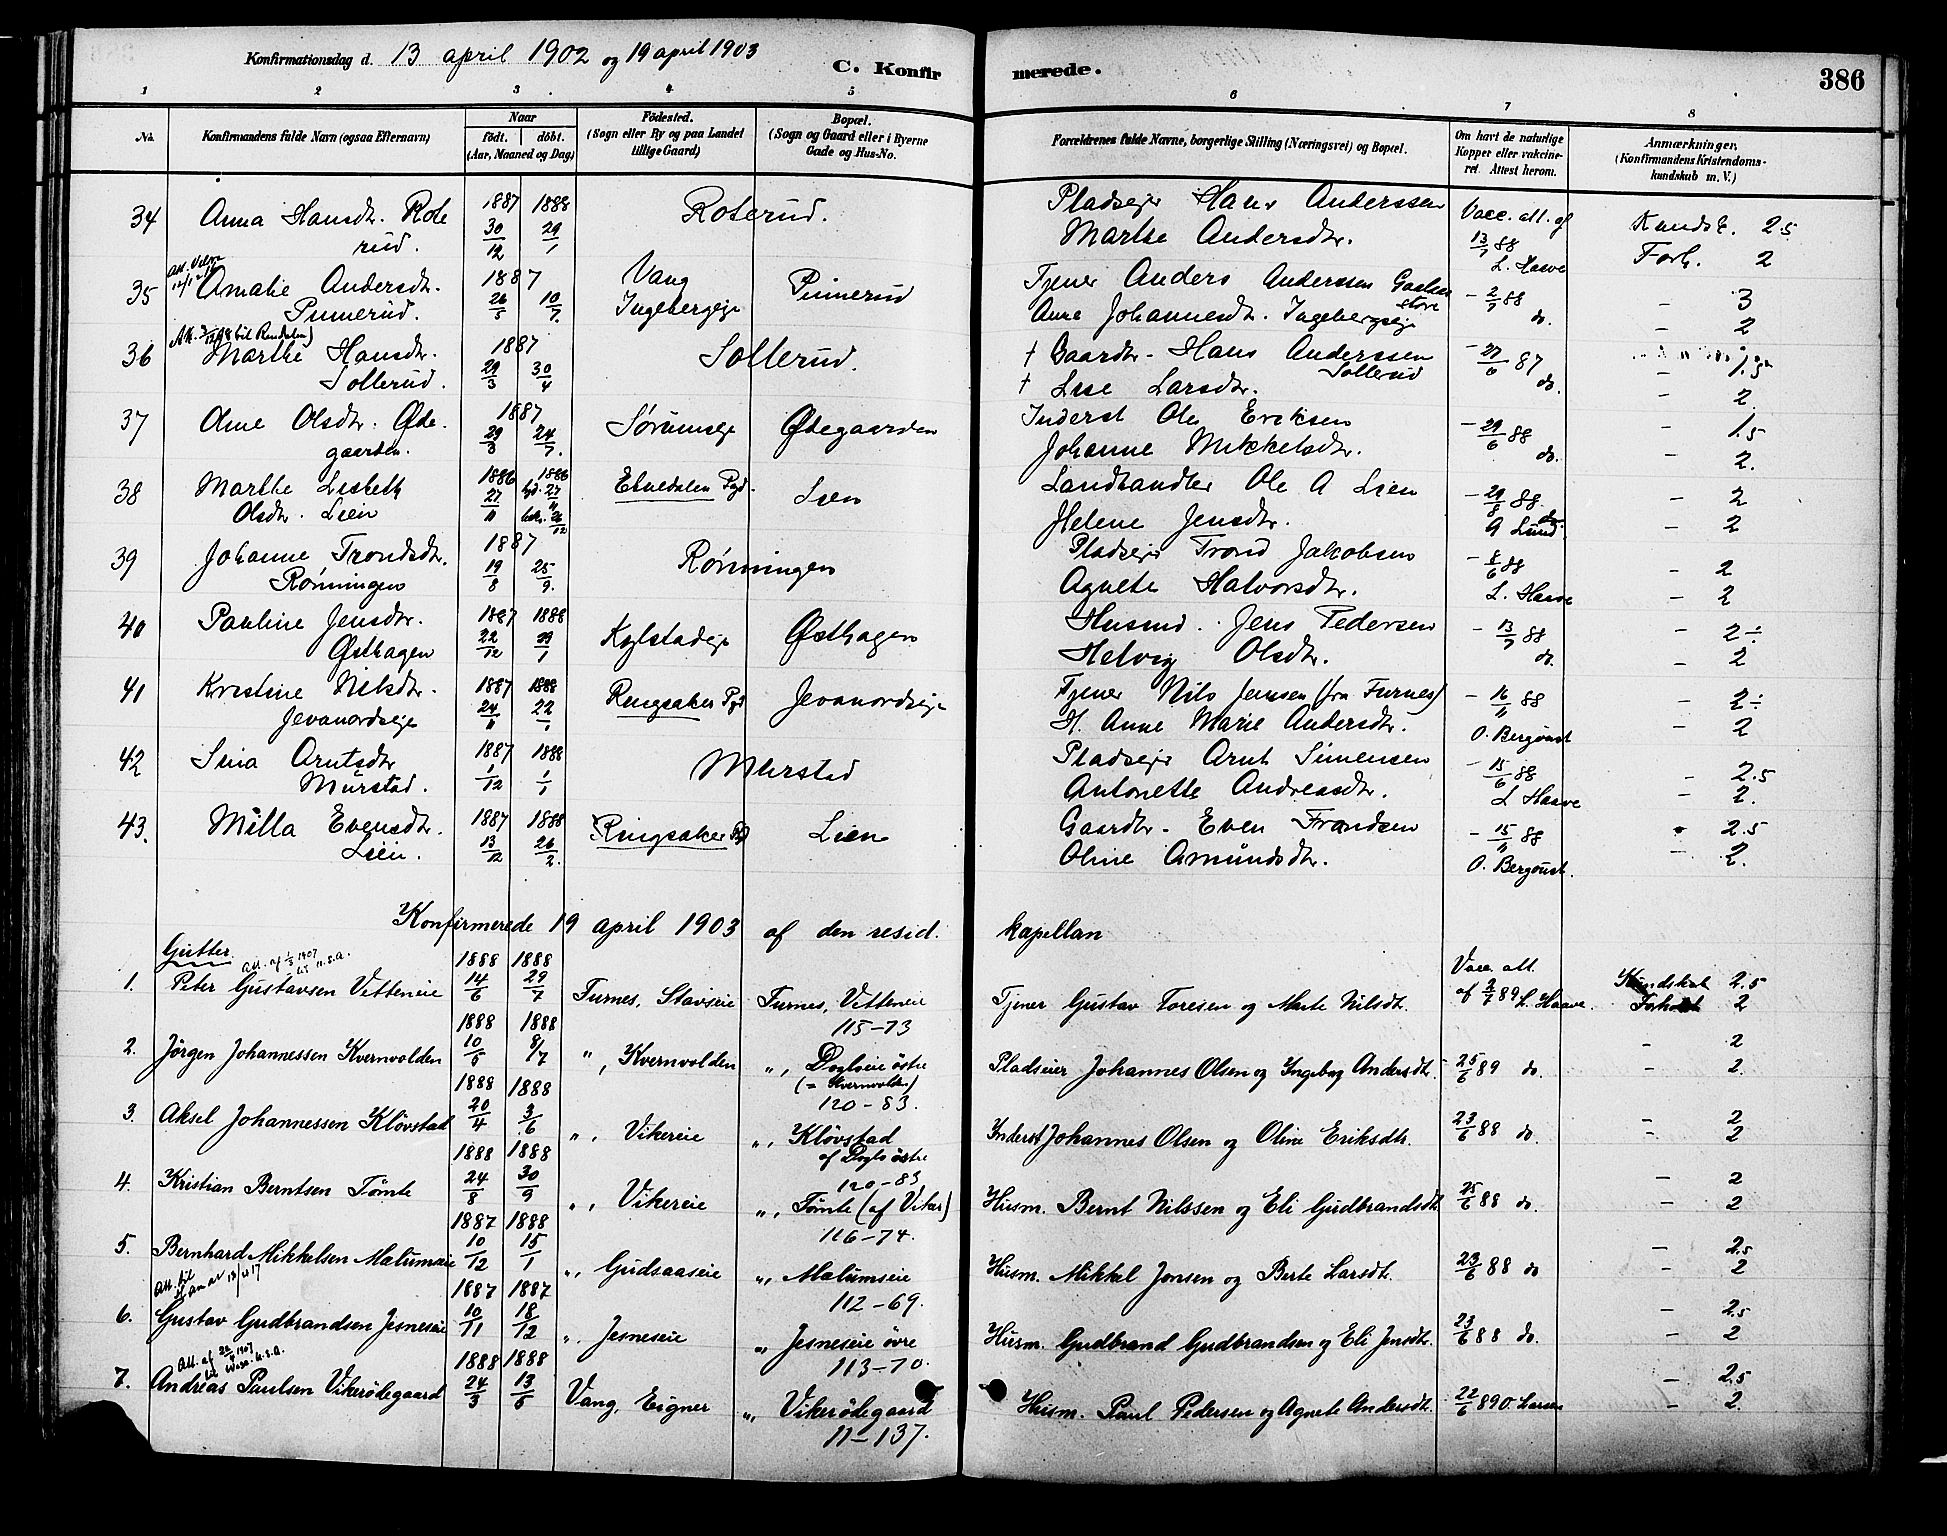 Konfirmationsdag d. 13 april 1902 og 19 april 1903
C. Konfirmerede.
386
1 2 3 4 5 6 7 8
No. Konfirmandens fulde Navn (ogsaa Efternavn) Naar født. døbt. (Aar, Maaned og Dag) Fødested. (Sogn eller By og paa Landet tillige Gaard) Bopæl. (Sogn og Gaard eller i Byerne Gade og Hus-No. Forældrenes fulde Navne, borgerlige Stilling (Næringsvei) og Bopæl. Om havt de naturlige Kopper eller vakcineret. Attest herom. Anmærkninger. (Konfirmandens Kristendomskundskab m. V.)
34 Anna Hansdtr. Roterud. 1887 30/12 1888 29/1 Roterud. Pladsejer Hans Anderssen Marthe Andersdtr. Vacc. att. af 13/7 88 L. Haave Kundsk. 2.5 Forh. 2
35 Amalie Andersdtr. Pünnerud. 1887 26/5 10/7. Vang Ingebergeje Pünnerud Tjener Anders Anderssen store Anne Johannesdtr. Ingebergseje - 2/7 88 do. - 3 - 2
36 Marthe Hansdtr. Sollerud. 1887 29/3 30/4 Sollerud. † Gaardbr. Hans Anderssen Sollerud † Lise Larsdtr. - 27/6 87 do. - 1.5 - 2
37 Anne Olsdtr. Ødegaarden. 1887 29/3 24/7. Sørumseje Ødegaarden Inderst Ole Eriksen Johanne Mikkelsdtr. - 29/6 88 do. - 1.5 - 2.
38 Marthe Lisbeth Olsdtr. Lien 1886 27/11 1886 27/11 26/12 Etnedalen Pgd. Lien Landhandler Ole A Lien Helene Jensdtr. - 29/8 88. A Lund - 2 - 2
39 Johanne Trondsdtr. Rønningen 1887 19/8 25/9. Rønningen Pladsejer Trond Jakobsen Agnete Halvorsdtr. - 8/6 88 L. Haave - 2 - 2
40 Pauline Jensdtr. Østhagen 1887 22/12 1888 29/1 Kylstadeje Østhagen Husmd. Jens Pedersen Helvig Olsdtr. - 13/7 88 do. - 2÷ - 2
41 Kristine Nilsdtr. Jevanordseje 1887 24/11 1888 22/1 Ringsaker Pgd Jevanordseje Tjener Nils Jensen (fra Furnes) H. Anne Marie Andersdtr. - 16/11 88 O. Bergqust - 2÷ - 2
42 Sina Arntsdtr Mürstad. 1887 1/12 1888 1/1 Murstad Pladsejer Arnt Simensen Antonette Andreasdtr. - 15/6 88 L Haave - 2.5 - 2.
43. Milla Evensdtr. Lien. 1887 13/12 1888 26/2. Ringsaker Pgd Lien Gaardbr. Even Frandsen Oline Amündsdtr. - 15/11 88 O. Bergqust. - 2.5 - 2.
Konfirmerede 19 april 1903 af den resid. kapellan
Gutter.
Att. af 1/3 1907 til U.S.A.
1. Peter Gustavsen Vetteneie 1888 14/6 1888 29/7 Furnes, Stavseie Furnes, Vetteneie 115-73 Tjener Gustav Toresen og Marte Nilsdt. Vacc. att. af 2/7 89 L. Haave. Kundskab 2.5 Forhold 2
2. Jørgen Johannessen Kvernvolden 1888 10/5 1888 8/7 ", Kvernvolden ", Dogloeie østre (= Kvernvolden) 120-83. Pladseier Johannes Olsen og Ingeborg Andersdt. 25/6 89 do. - 2 - 2.
3. Aksel Johannessen Kløvstad 1888 20/4 1888 3/6 ", Vikereie ", Kløvstad af Doglo østre 120-83 Inderst Johannes Olsen og Oline Eriksdt. 23/6 88 do. - 2 - 2
4. Kristian Berntsen Tømte 1888 24/8 1888 30/9 ", Vikereie ", Tømte (af Viker) 116-74. Husm. Bernt Nilssen og Eli Gudbrandsdt. 25/6 88 do. - 2 - 2
5. Bernhard Mikkelsen Malumseie 1887 10/12 1888 15/1 ", Gudsaaseie ", Malumseie 112-69. Husm. Mikkel Jonsen og Berte Larsdt. 23/6 88 do - 2.5 - 2
Att. til Hamar
6. Gustav Gudbrandsen Jesneseie 1887 10/11 1887 18/12 ", Jesneseie ", Jesneseie øvre 113-70. Husm. Gudbrand Gudbrandsen og Eli Jensdt. 23/6 88 do. - 2.5 - 2
Att. af 22/4 1907 U.S.A.
7. Andreas Paulsen Vikerødegaard 1888 24/3 1888 13/5 Vang, Eigner ", Vikerødegaard 11-137. Husm. Paul Pedersen og Agnete Andersdt. 22/6 89 O. Larsen - 2.5 - 2.